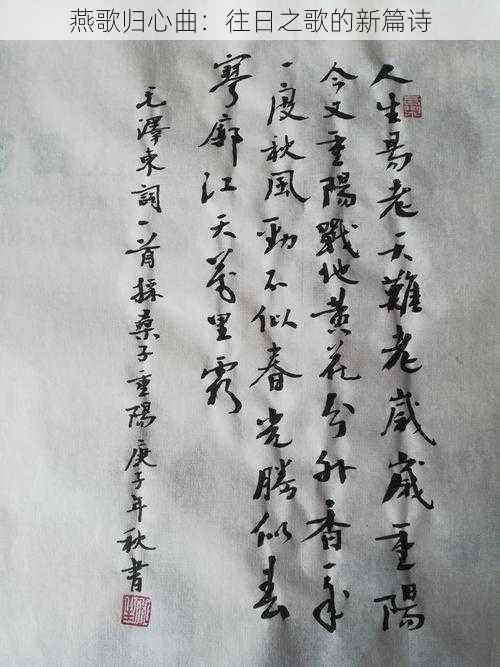 燕歌归心曲：往日之歌的新篇诗
人生易老天難老歲歲重陽
今又重陽戰地黄花分外香一年
一度秋風勁不似春光勝似春
寥廓江天萬里霜
毛澤東詞一首採桑子重陽庚子年秋書